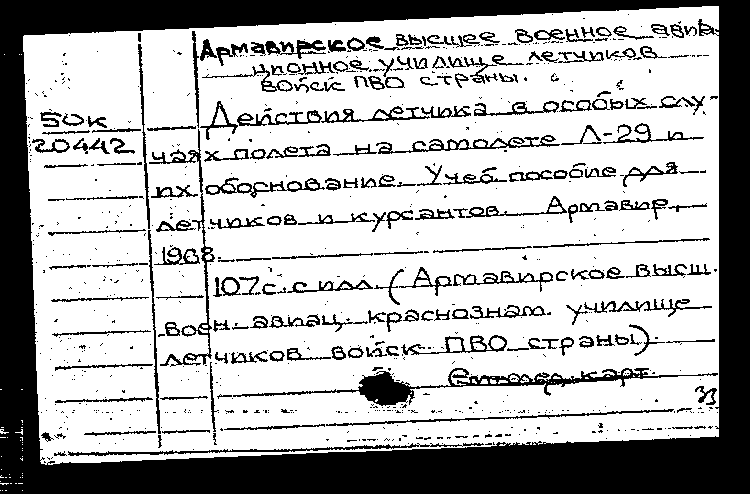 Армавирское высшее военное авиа-
ционное училище летчиков
войск ПВО страны.
50к
Действия летчика в особых слу-
20442
чаях полета на самолете Л-29 и
их обоснование. Учеб. пособие для
летчиков и курсантов. Армавир,
1968.
107 с. с илл. (Армавирское высш.
воен. авиац. краснознам. училище
летчиков войск ПВО страны).
карт.
33